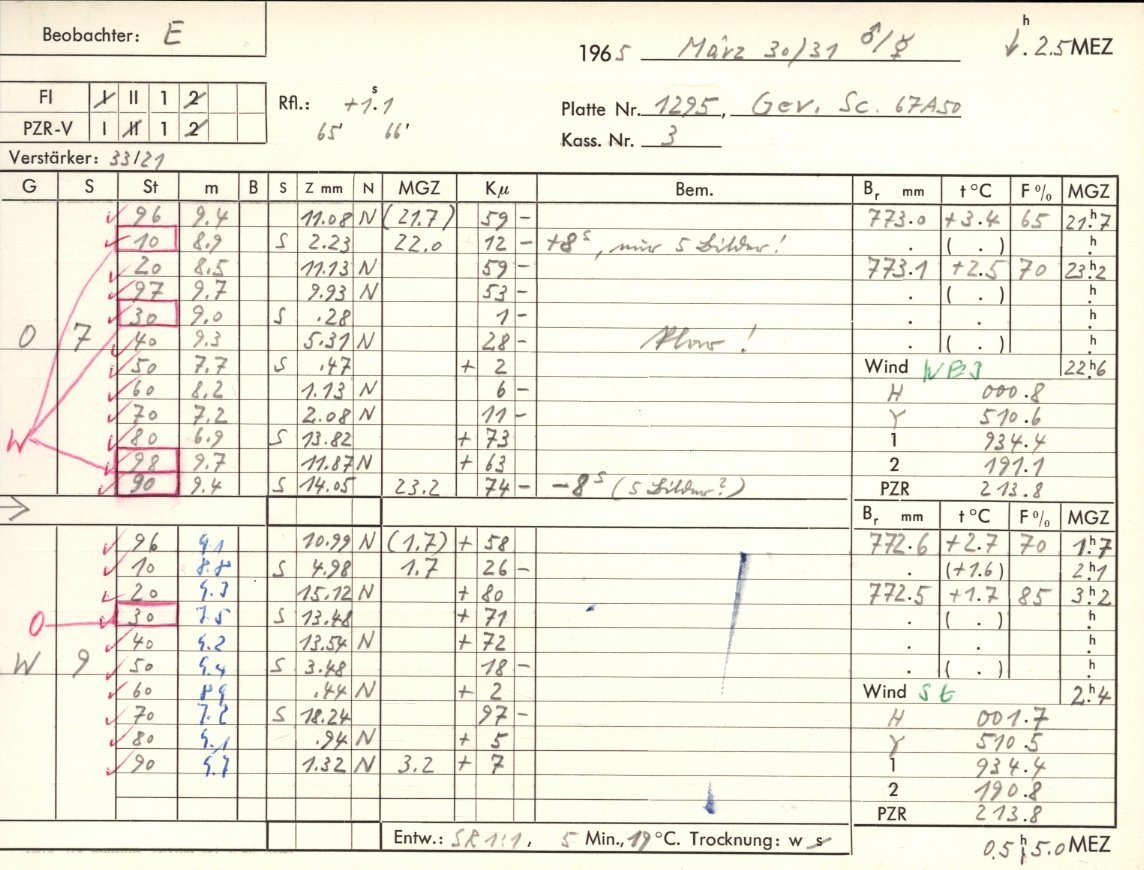 Beobachter: E
1965 März 30/31 ♂/☿ h 2.5 MEZ
FI I II 1 2
Rfl.: +1.1 s
Platte Nr. 1295, Gev. Sc. 67A50
PZR-V I II 1 2
65' 66'
Kass. Nr. 3
Verstärker: 33/21
G S St m B S Z mm N MGZ Kμ Bem. Br mm t °C F% MGZ
96 9.4 11.08 N (21.7) 59 - 773.0 +3.4 65 21h7
10 8.9 S 2.23 22.0 12 - +8s, nur 5 Bilder! . ( . ) h.
20 8.5 11.13 N 59 - 773.1 +2.5 70 23h2
97 9.7 9.93 N 53 - . ( . ) h.
30 9.0 S .28 1 - . . h.
O 7 40 9.3 5.31 N 28 - ! . ( . ) h.
50 7.7 S .47 + 2 Wind 22h6
60 8.2 1.13 N 6 - H 000.8
70 7.2 2.08 N 11 - Y 510.6
W 80 6.9 S 13.82 + 73 1 934.4
98 9.7 11.87 N + 63 2 191.1
90 9.4 S 14.05 23.2 74 - -8s (5 Bilder?) PZR 213.8
Br mm t °C F% MGZ
96 9.1 10.99 N (1.7) + 58 772.6 +2.7 70 1h7
10 8.8 S 4.98 1.7 26 - . (+1.6) 2h1
20 15.12 N + 80 772.5 +1.7 85 3h2
O 30 7.5 S 13.48 + 71 . ( . ) h.
40 9.2 13.54 N + 72 . . h.
W 9 50 9.4 S 3.48 18 - . ( . ) h.
60 8.9 .44 N + 2 Wind SE 2h4
70 7.2 S 18.24 97 - H 001.7
80 9.1 .94 N + 5 Y 510.5
90 1.32 N 3.2 + 7 1 934.4
2 190.8
PZR 213.8
Entw.: SR 1:1, 5 Min., 19 °C. Trocknung: w s
0.5 h 5.0 MEZ